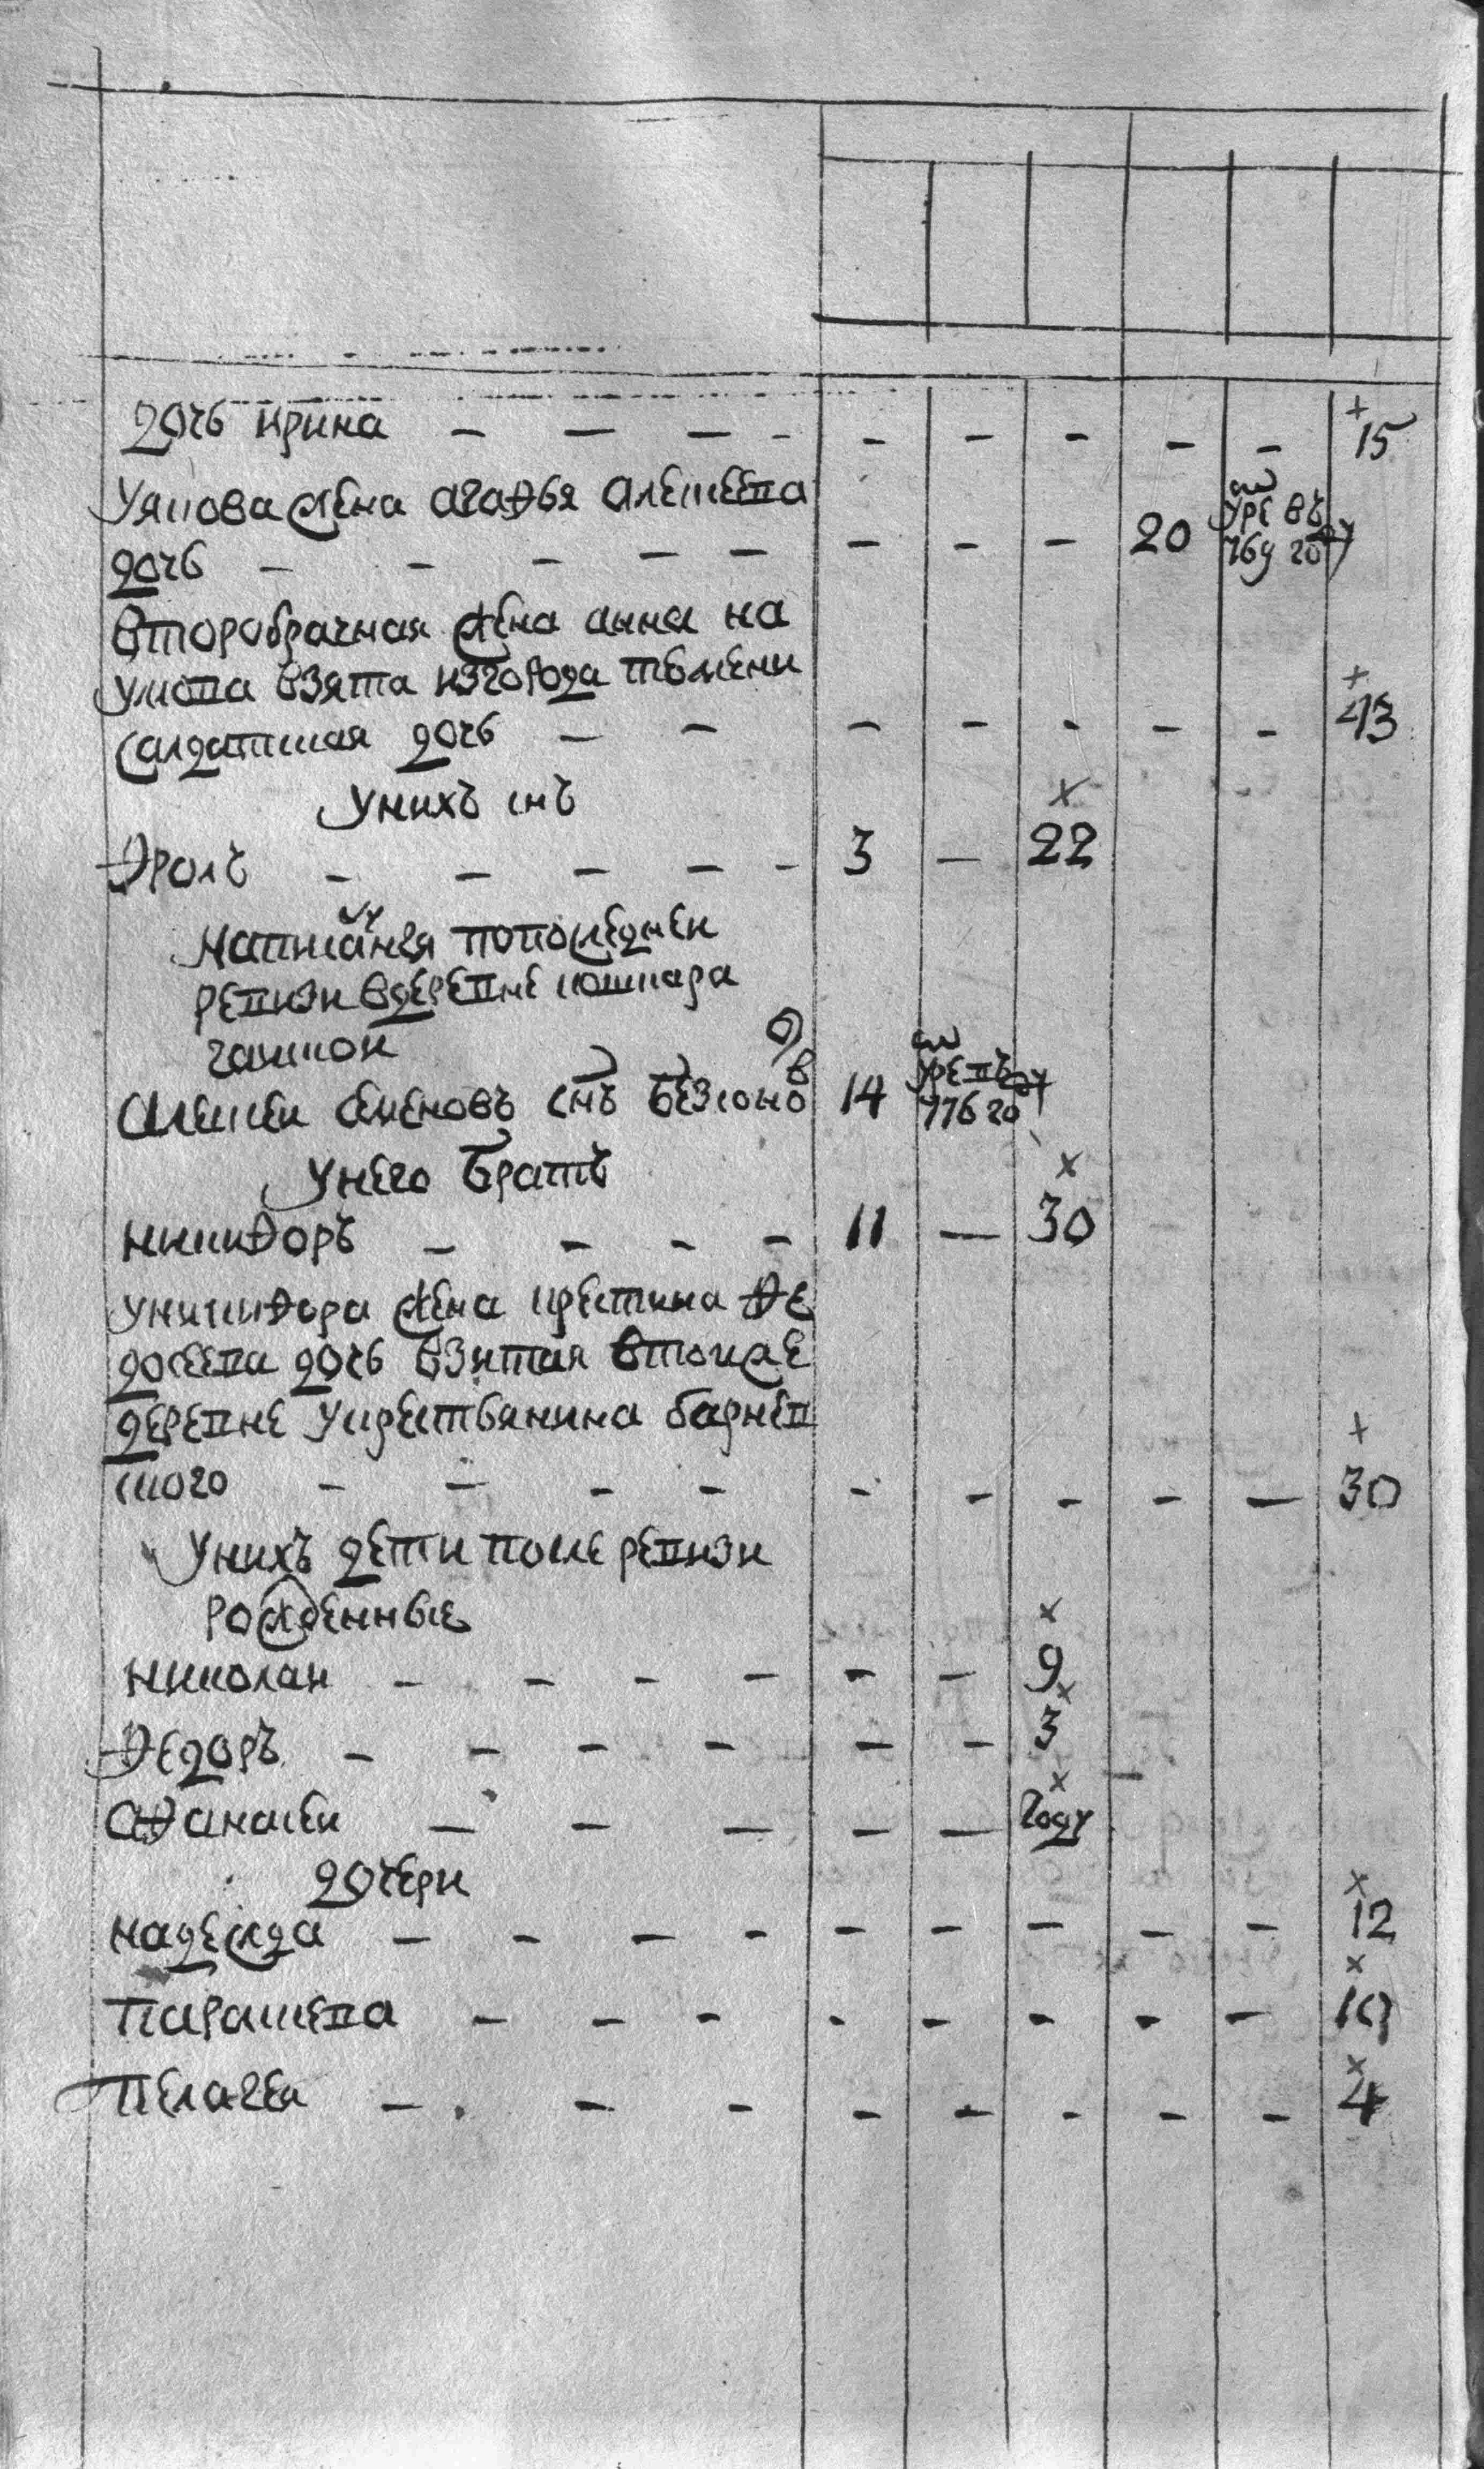 дочь ирина — — — — — — — — — 15
Уякова жена агафья алексеева
дочь — — — — — — — — 20 умре въ 769 году
второбрачная жена анна на
умова взята изгорода тюмени
салдатская дочь — — — — — — — 43
Унихъ снъ
Фролъ — — — — — 3 — 22
написанея попоследнеи
ревизи вдеревне кошкара
гаиской
Алексеи семеновъ снъ безсоно в 14 умре въ 776 году
Унего братъ
никифоръ — — — — 11 — 30
Уникифора жена кристина фе
досеева дочь взятая втоиже
деревне укрестьянина барнев
ского — — — — — — — — — 30
Унихъ дети после ревизи
рожденные
николаи — — — — — — 9
Федоръ — — — — — — 3
афанасеи — — — — — году
дочери
надежда — — — — — — — — — 12
Парасковева — — — — — — — — 10
Пелагея — — — — — — — — 4